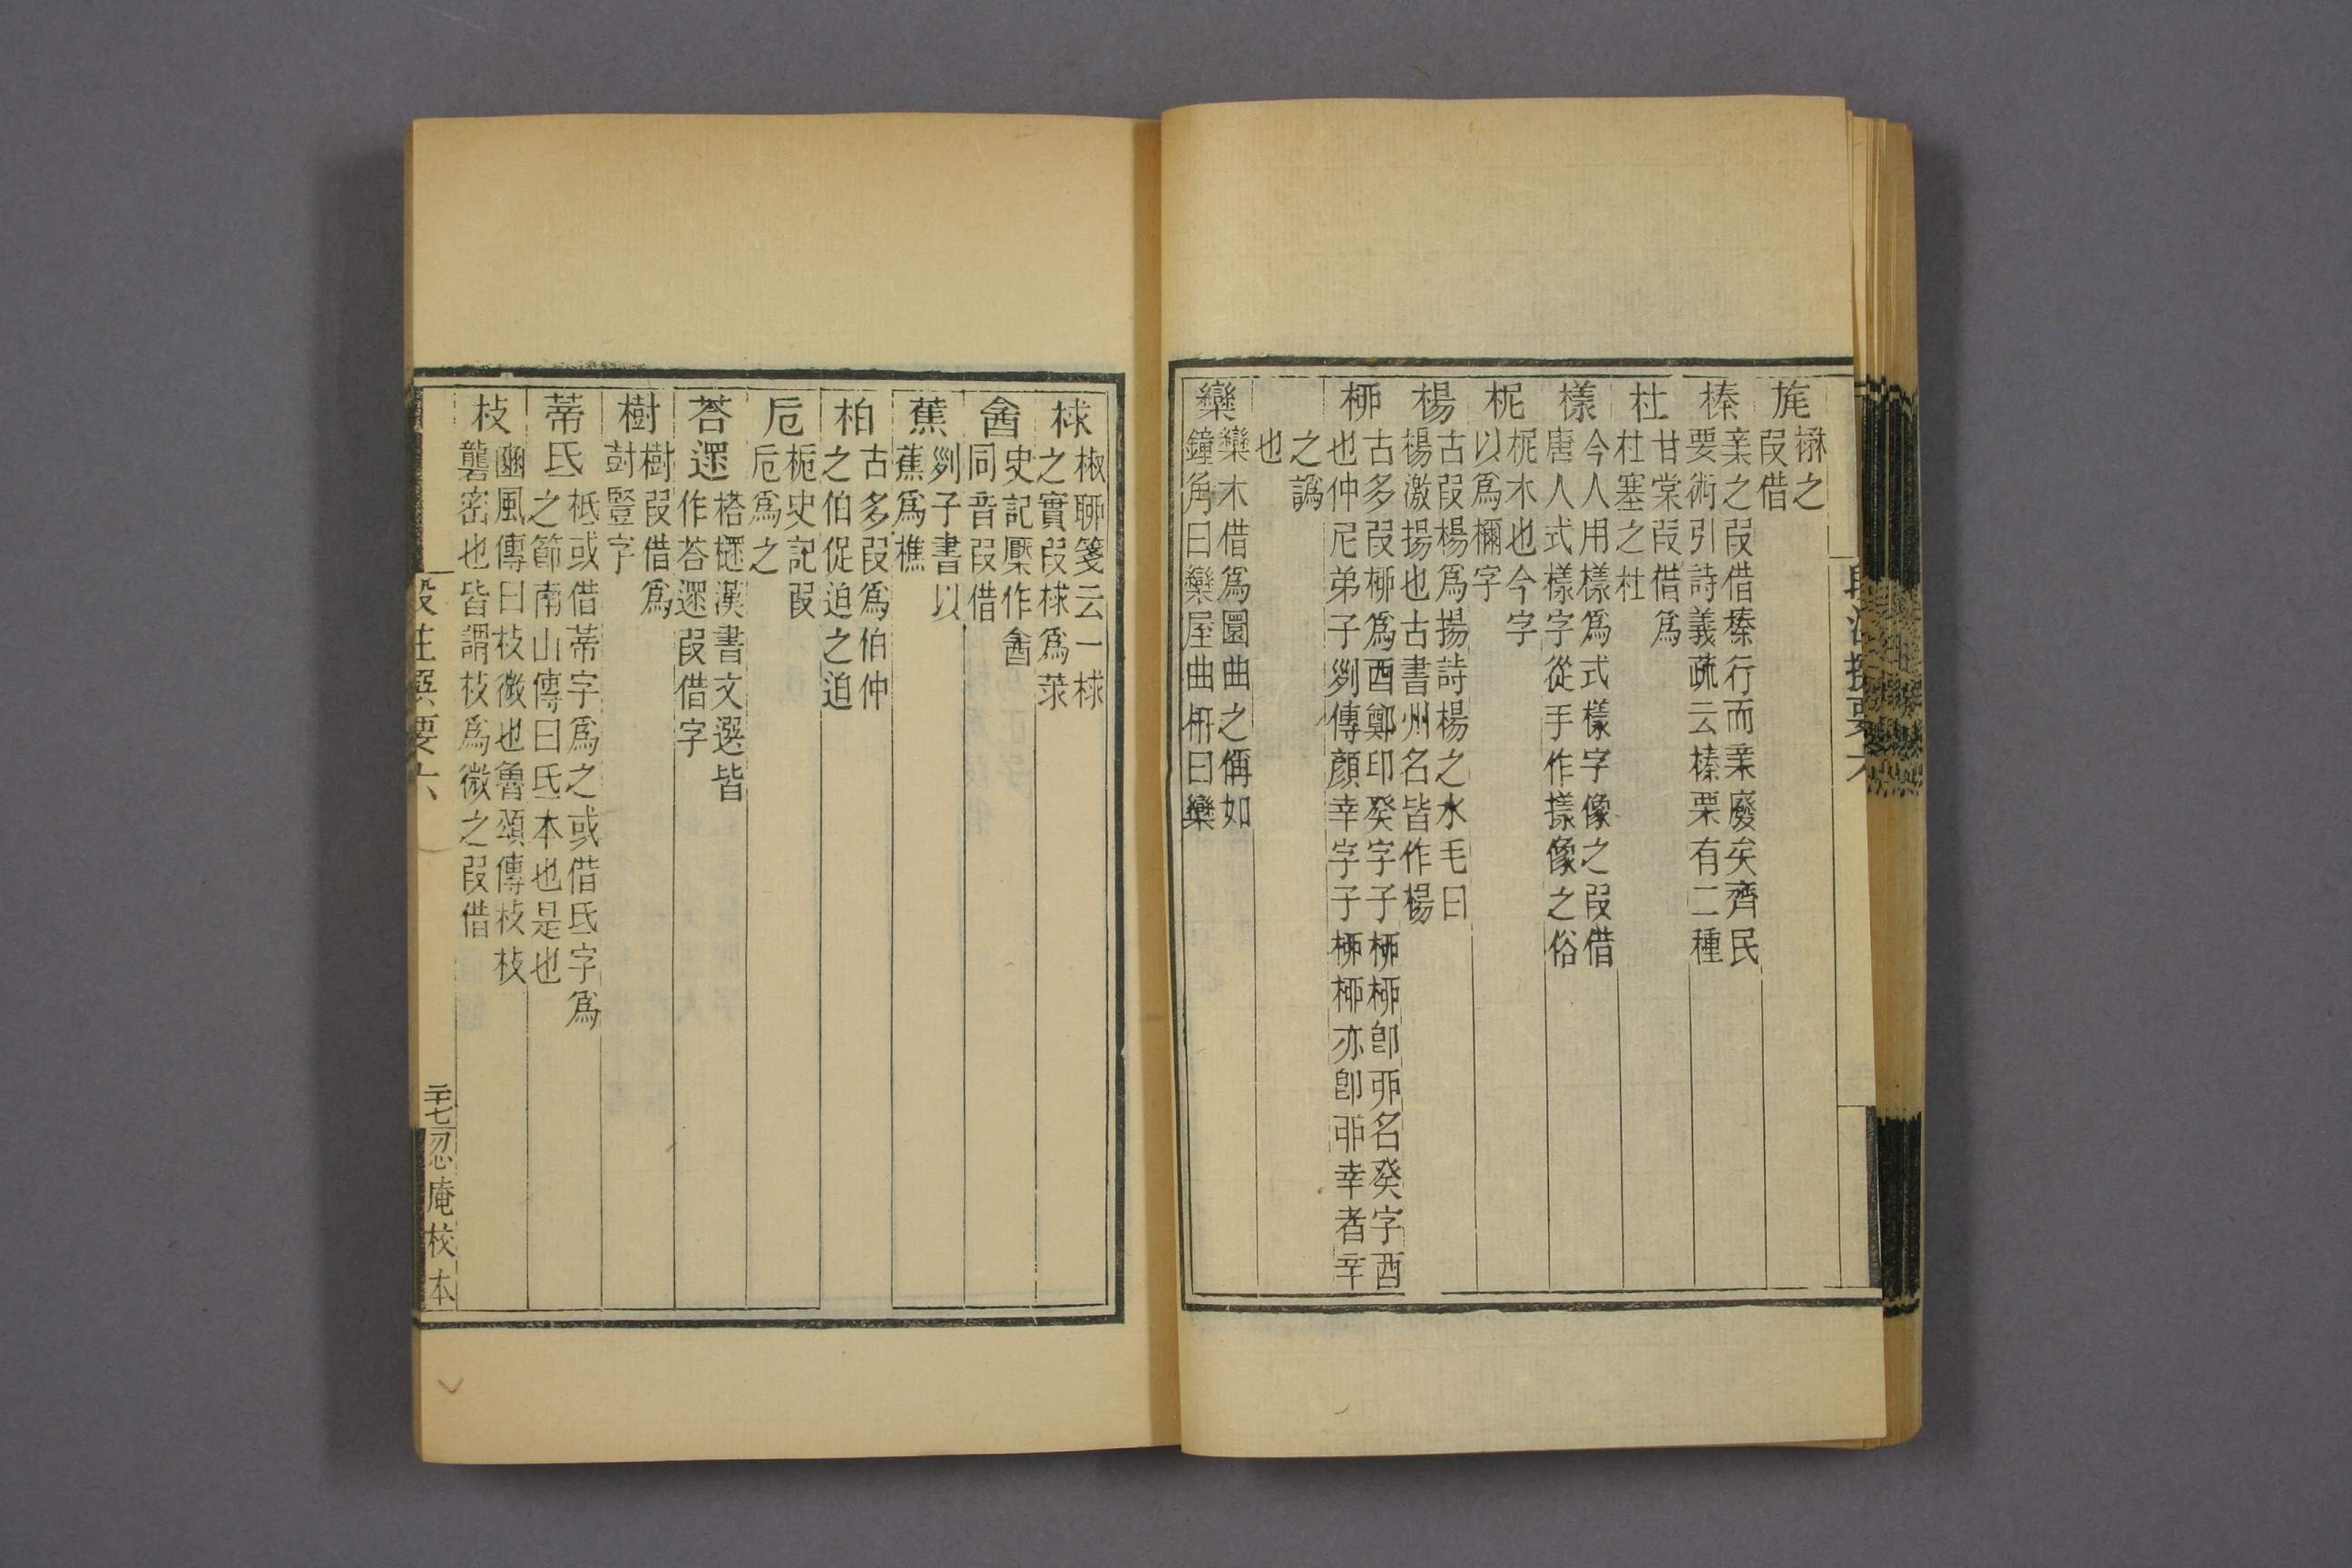 段注撰要六
旄
楙之
叚借
榛
亲之叚借榛行而亲廢矣齊民
要術引詩義疏云榛栗有二種
杜
甘棠叚借爲
杜塞之杜
樣
今人用樣爲式樣字像之叚借
唐人式樣字從手作㨾像之俗
柅
柅木也今字
以爲檷字
楊
古叚楊爲揚詩楊之水毛曰
楊激揚也古書州名皆作楊
桺
古多叚桺爲酉鄭印癸字子桺桺卽丣名癸字酉
也仲尼弟子列傳顏幸字子桺桺亦卽丣幸者辛
之譌
也
欒
欒木借爲圜曲之偁如
鐘角曰欒屋曲枅曰欒
梂
椒聊箋云一梂
之實叚梂爲莍
酓
史記檿作酓
同音叚借
蕉
列子書以
蕉爲樵
柏
古多叚爲伯仲
之伯促迫之迫
卮
梔史記叚
卮爲之
荅遝
榙㯚漢書文選皆
作荅遝叚借字
樹
樹叚借爲
尌豎字
蒂氐
柢或借蒂字爲之或借氐字爲
之節南山傳曰氐本也是也
枝
豳風傳曰枝微也魯頌傳枝枝
礱密也皆謂枝爲微之叚借
段注撰要六
二十七
忍庵校本